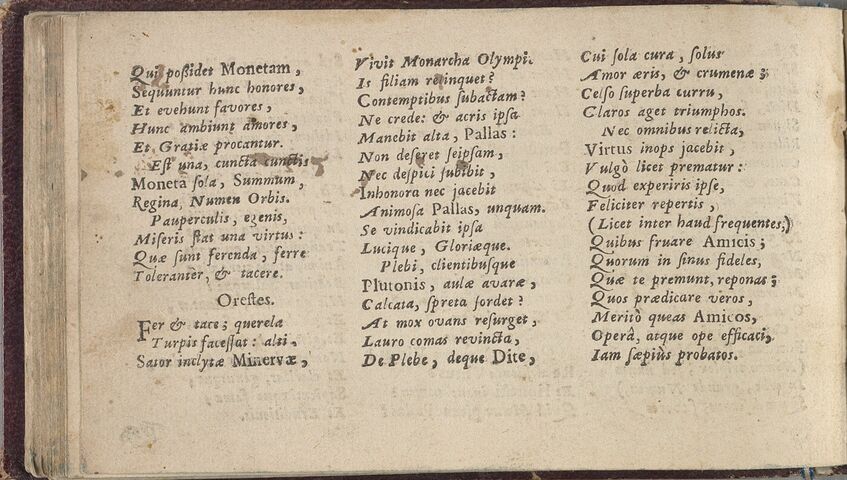 Qui poſſidet Monetam,
Sequuntur hunc honores,
Et evehunt favores,
Hunc ambiunt amores,
Et Gratiæ procantur.
Eſt una, cuncta cunctis
Moneta ſola, Summum,
Regina, Numen Orbis.
Pauperculis, egenis,
Miſeris ſtat una virtus:
Quæ sunt ferenda, ferre
Toleranter, & tacere.
Oreſtes.
Fer & tace; querela
Turpis faceſſat: alti,
Sator inclytæ Minervæ,
Vivit Monarcha Olympi.
Is filiam relinquet?
Contemptibus ſubactam?
Ne crede: & acris ipſa
Manebit alta, Pallas:
Non deſeret ſeipſam,
Nec deſpici ſubibit,
Inhonora nec jacebit
Animoſa Pallas, unquam.
Se vindicabit ipſa
Lucique, Gloriæque.
Plebi, clientibuſque
Plutonis, aulæ avaræ,
Calcata, ſpreta ſordet?
At mox ovans reſurget,
Lauro comas revincta,
De Plebe, deque Dite,
Cui ſola cura, ſolus
Amor æris, & crumenæ;
Celſo ſuperba curru,
Claros aget triumphos.
Nec omnibus relicta,
Virtus inops jacebit,
Vulgò licet prematur:
Quod experiris ipſe,
Feliciter repertis,
(Licet inter haud frequentes,)
Quibus fruare Amicis;
Quorum in ſinus fideles,
Quæ te premunt, reponas;
Quos prædicare veros,
Meritò queas Amicos,
Operâ, atque ope efficaci,
Iam ſæpiùs probatos.